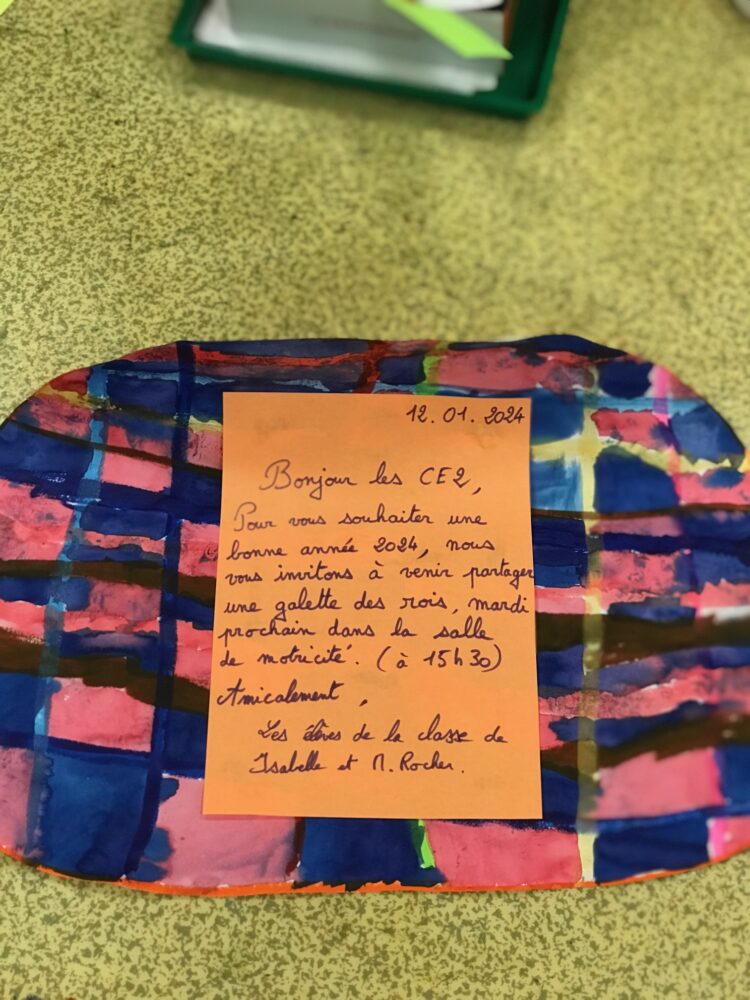 12.01.2024
Bonjour les CE2,
Pour vous souhaiter une
bonne année 2024, nous
vous invitons à venir partager
une galette des rois, mardi
prochain dans la salle
de motricité. (à 15h30)
Amicalement,
Les élèves de la classe de
Isabelle et M. Rocher.